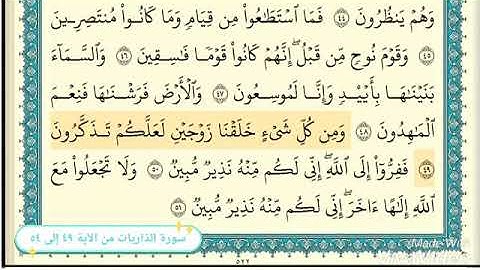 وَهُمْ يَنظُرُونَ ٤٤ فَمَا ٱسْتَطَـٰعُوا۟ مِن قِيَامٍ وَمَا كَانُوا۟ مُنتَصِرِينَ
٤٥ وَقَوْمَ نُوحٍ مِّن قَبْلُ ۖ إِنَّهُمْ كَانُوا۟ قَوْمًا فَـٰسِقِينَ ٤٦ وَٱلسَّمَآءَ
بَنَيْنَـٰهَا بِأَيْي۟دٍ وَإِنَّا لَمُوسِعُونَ ٤٧ وَٱلْأَرْضَ فَرَشْنَـٰهَا فَنِعْمَ
ٱلْمَـٰهِدُونَ ٤٨ وَمِن كُلِّ شَىْءٍ خَلَقْنَا زَوْجَيْنِ لَعَلَّكُمْ تَذَكَّرُونَ
٤٩ فَفِرُّوٓا۟ إِلَى ٱللَّهِ ۖ إِنِّى لَكُم مِّنْهُ نَذِيرٌ مُّبِينٌ ٥٠ وَلَا تَجْعَلُوا۟ مَعَ
ٱللَّهِ إِلَـٰهًا ءَاخَرَ ۖ إِنِّى لَكُم مِّنْهُ نَذِيرٌ مُّبِينٌ ٥١
سورة الذاريات من الآية ٤٩ إلى ٥٤
٥٢٢